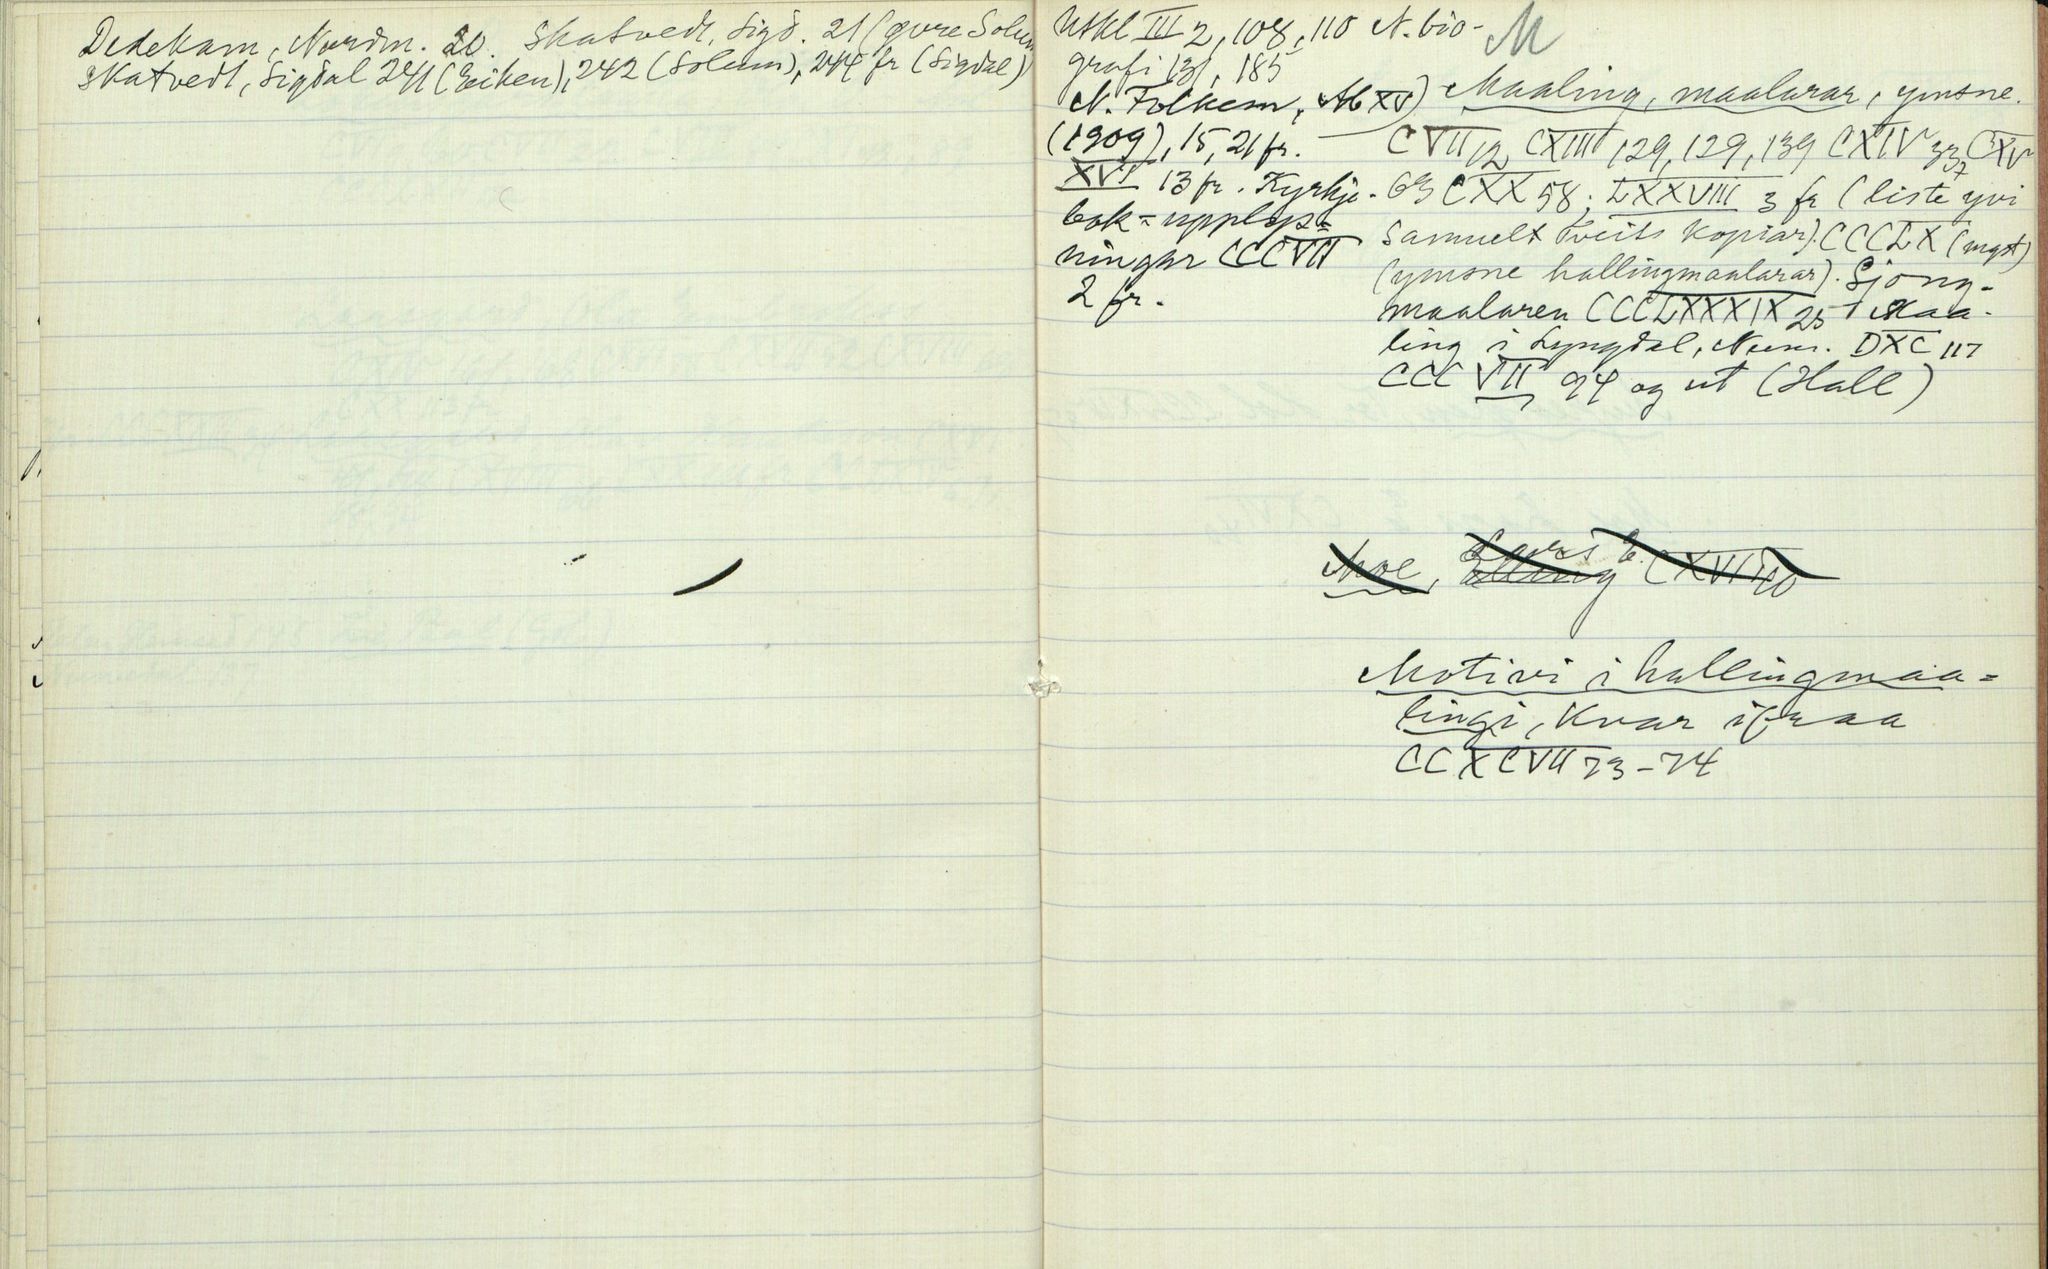 Dedekam, Nordm. 20. Skatvedt, Sigd. 21 (øvre Solum
Skatvedt, Sigdal 241 (Eiken), 242 (Solem), 244 fr (Sigdal)
M
Utkl III 2, 108, 110 N. bio-
grafi 131, 185
N. Folkem, Ab XV)
(1909), 15, 21 fr.
XVI 13 fr. Kyrkje-
bok=upplys=
ningar CCCVII
2 fr.
Maaling, maalarar, ymsne.
CVII 12 CXIII 129, 129, 139 CXIV 337 CXV
63 CXX 58; LXXVIII 3 fr (liste yvi
Samuel Tveits kopiar). CCCLX (mgst)
(ymsne hallingmaalarar). Sjong-
maalaren CCCLXXXIX 25 Maa-
ling i Lyngdal, Num. DXC 117
CCCVII 94 og ut (Hall)
Moe, Lars E. CXVI 40
Motivi i hallingmaa=
lingi, kvar ifraa
CCXCVII 73-74